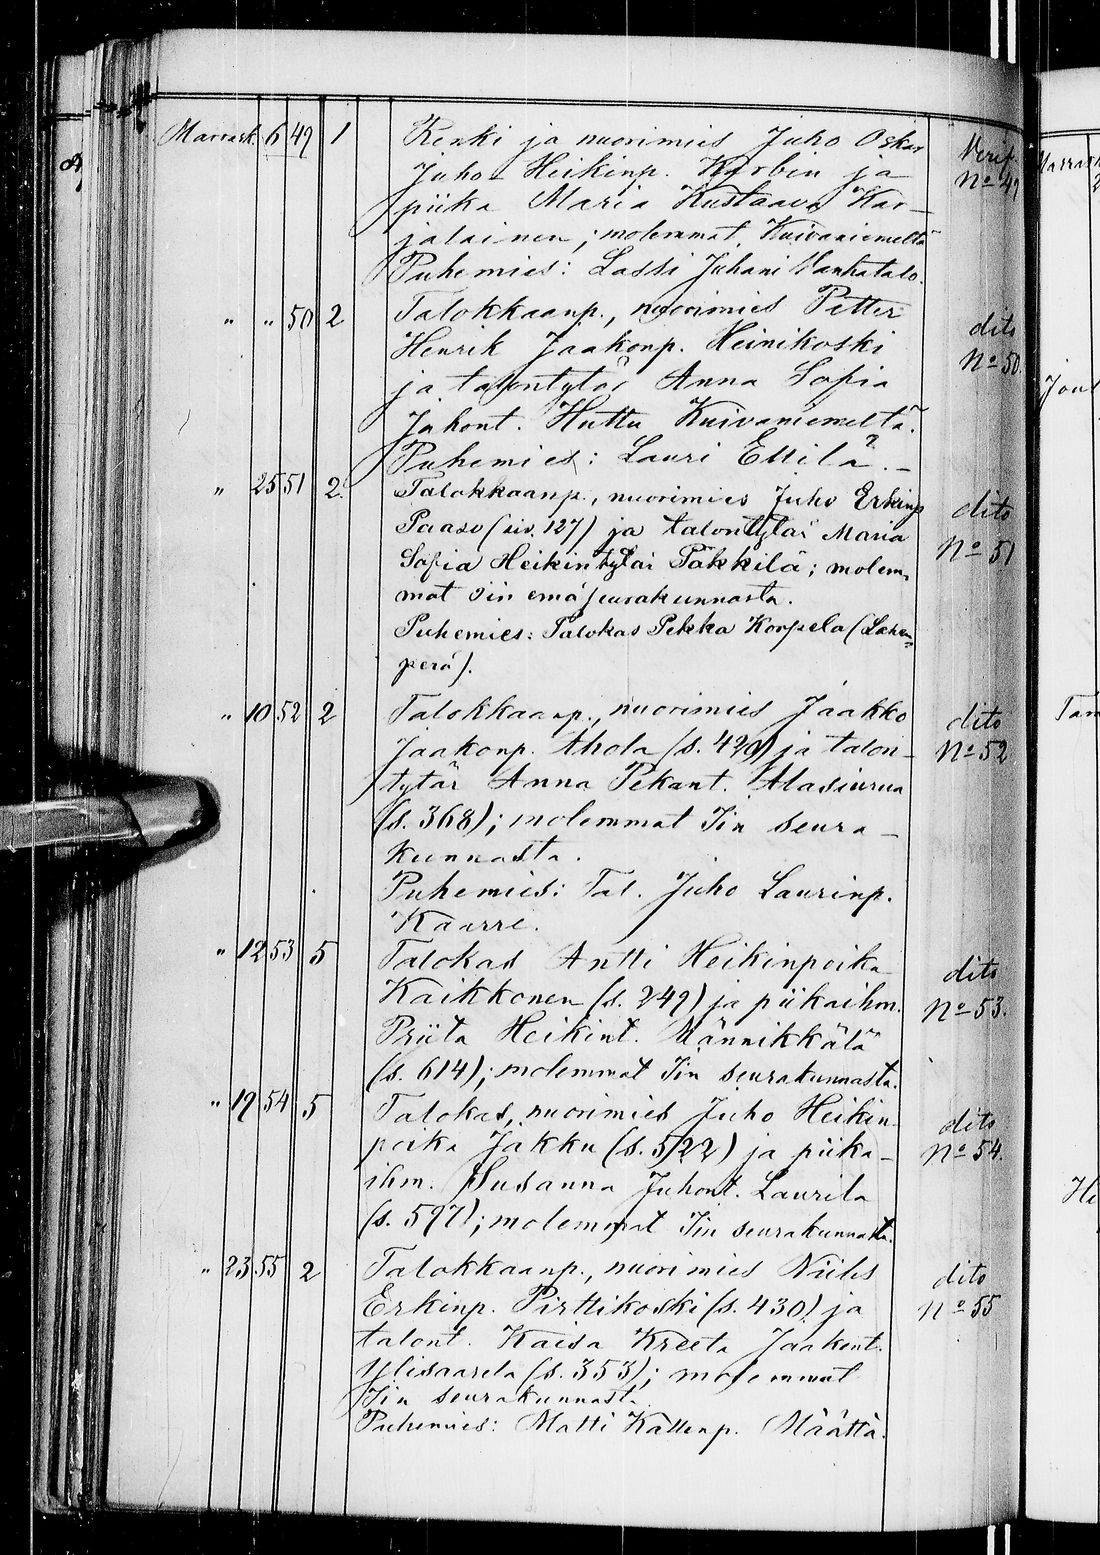 Marrask. 6 49 1 Renki ja nuorimies Juho Oskar Verif.
Juho Heikinp. Karbin ja No 49
piika Maria Kustaava Kar-
jalainen; molemmat Kuivaniemeltä
Puhemies: Lassi Juhani Vanhatalo.
" " 50 2 Talokkaanp., nuorimies Petter dito
Henrik Jaakonp. Heinikoski No 50.
ja talontytär Anna Sofia
Juhont. Huttu Kuivaniemeltä.
Puhemies: Lauri Ettilä. -
" 25 51 2. Talokkaanp., nuorimies Juho Erkinp dito
Paaso (siv. 127) ja talontytär Maria No 51
Sofia Heikintytär Päkkilä; molem-
mat Iin emäseurakunnasta.
Puhemies: Talokas Pekka Korpela (Lahen-
perä).
" 10 52 2 Talokkaanp., nuorimies Jaakko dito
Jaakonp. Ahola (s. 420) ja talon- No 52
tytär Anna Pekant. Alasiurua
(s. 368); molemmat Iin seura-
kunnasta.
Puhemies: Tal. Juho Laurinp.
Kaarre.
" 12 53 5 Talokas Antti Heikinpoika dito
Kaikkonen (s. 249) ja piikaihm. No 53.
Priita Heikint. Männikkälä
(s. 614); molemmat Iin seurakunnasta.
" 19 54 5 Talokas, nuorimies Juho Heikin- dito
poika Jakku (s. 522) ja piika- No 54.
ihm. Susanna Juhont. Laurila
(s. 597); molemmat Iin seurakunnasta.
" 23 55 2 Talokkaanp., nuorimies Niiles dito
Erkinp. Pirttikoski (s. 430) ja No 55
talont. Kaisa Kreeta Jaakont.
Ylisaarela (s. 353); molemmat
Iin seurakunnasta.
Puhemies: Matti Kallenp. Määttä.